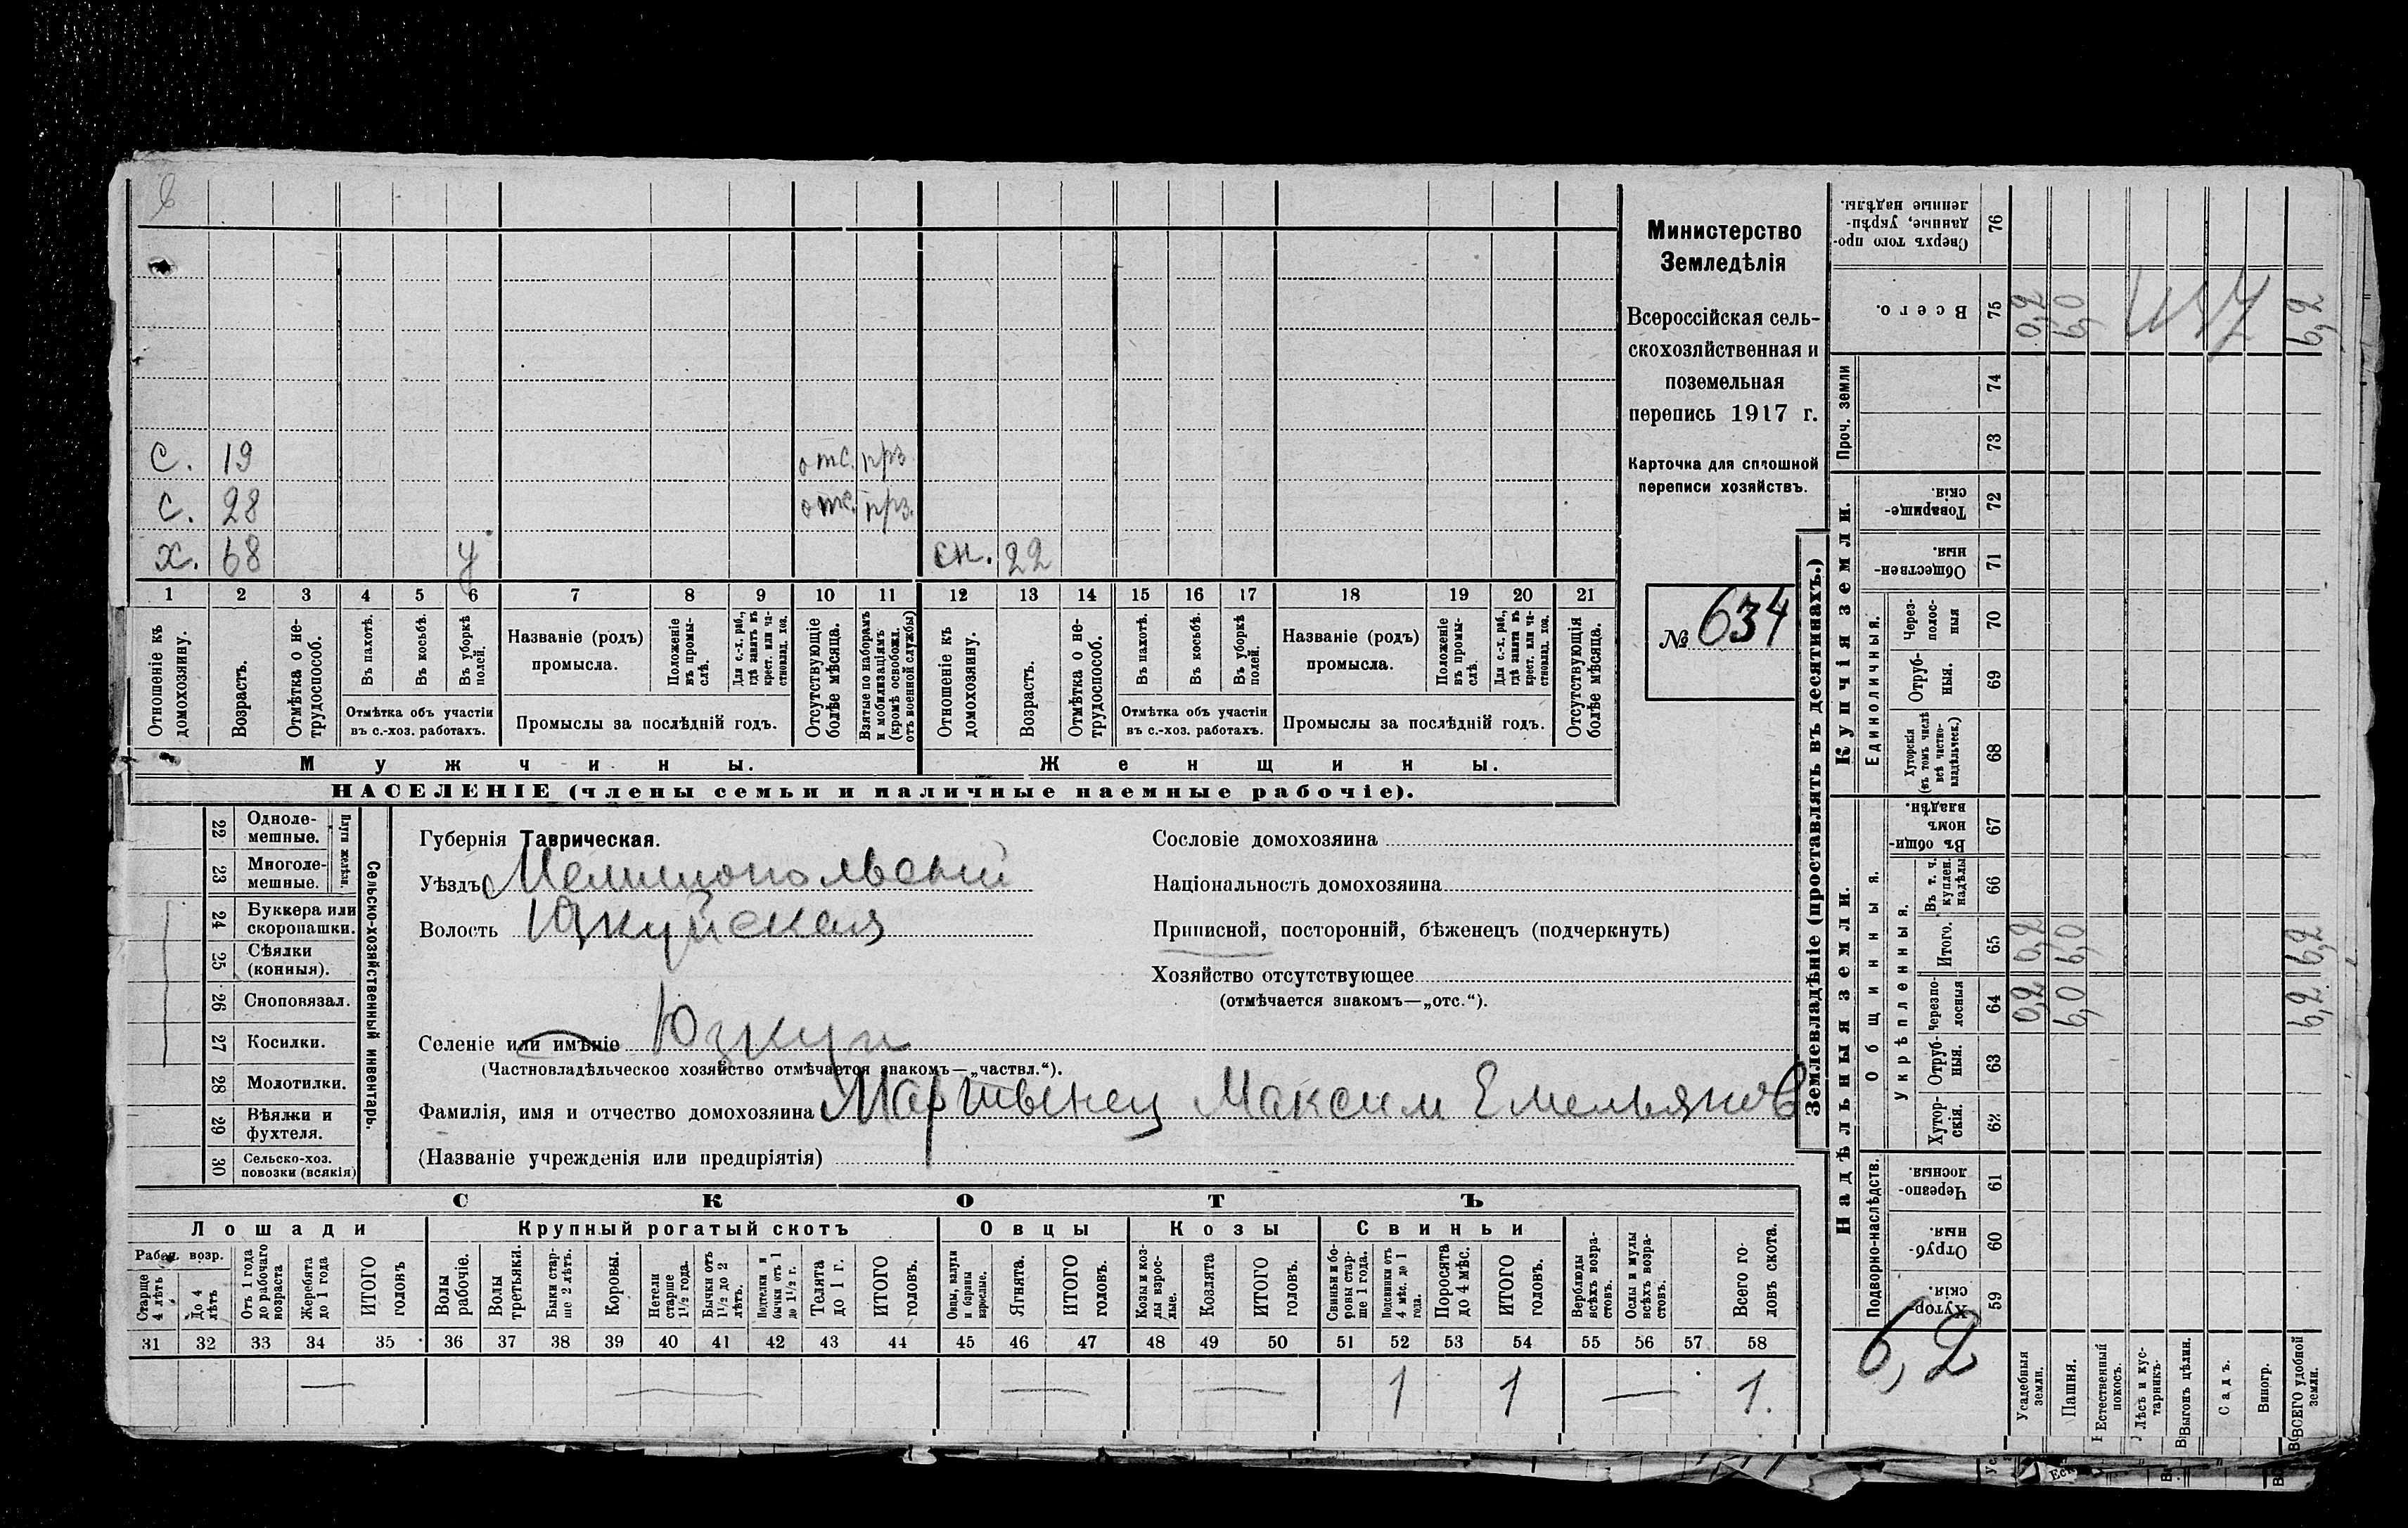 Министерство
Земледѣлія
Всероссійская сель-
скохозяйственная и
поземельная
перепись 1917 г.
Карточка для сплошной
переписи хозяйствъ.
№ 634
С. 19 отс. прз
С. 28 отс. прз.
х. 68 У сн. 22
1 2 3 4 5 6 7 8 9 10 11 12 13 14 15 16 17 18 19 20 21
Отношеніе къ домохозяину.
Возрастъ.
Отмѣтка о не-трудоспособ.
Въ пахотѣ.
Въ косьбѣ.
Въ уборкѣ полей.
Отмѣтка объ участіи
въ с.-хоз. работахъ.
Названіе (родъ)
промысла.
Положеніе въ промы-слѣ.
Для с.-х. раб., гдѣ занятъ въ крест. или ча-стновлад. хоз.
Промыслы за послѣдній годъ.
Отсутствующіе болѣе мѣсяца.
Взятые по наборамъ и мобилизаціямъ (кромѣ освобожд. отъ военной службы)
Отношеніе къ домохозяину.
Возрастъ.
Отмѣтка о не-трудоспособ.
Въ пахотѣ.
Въ косьбѣ.
Въ уборкѣ полей.
Отмѣтка объ участіи
въ с.-хоз. работахъ.
Названіе (родъ)
промысла.
Положеніе въ промы-слѣ.
Для с.-х. раб., гдѣ занята въ крест. или ча-стновлад. хоз.
Промыслы за послѣдній годъ.
Отсутствующія болѣе мѣсяца.
Мужчины. Женщины.
НАСЕЛЕНІЕ (члены семьи и наличные наемные рабочіе).
Сельско-хозяйственный инвентарь.
Плуги желѣзн.
22 Одноле-мешные.
23 Многоле-мешные.
24 Буккера или скоропашки.
25 Сѣялки (конныя).
26 Сноповязал.
27 Косилки.
28 Молотилки.
29 Вѣялки и фухтеля.
30 Сельско-хоз. повозки (всякія)
Губернія Таврическая.
Уѣздъ Мелитопольскій
Волость Юзкуйская
Селеніе или имѣніе Юзкуи
(Частновладѣльческое хозяйство отмѣчается знакомъ—„частвл.“).
Фамилія, имя и отчество домохозяина Мартвенец Максим Емельянов
(Названіе учрежденія или предпріятія)
Сословіе домохозяина
Національность домохозяина
Приписной, посторонній, бѣженецъ (подчеркнуть)
Хозяйство отсутствующее
(отмѣчается знакомъ—„отс.“).
СКОТЪ
Лошади Крупный рогатый скотъ Овцы Козы Свиньи
Рабоч. возр.
Старше 4 лѣтъ
До 4 лѣтъ
Отъ 1 года до рабочаго возраста
Жеребята до 1 года
ИТОГО головъ
Волы рабочіе.
Волы третьяки.
Быки стар-ше 2 лѣтъ.
Коровы.
Нетели старше 1½ года.
Бычки отъ 1½ до 2 лѣтъ.
Подтелки и бычки отъ 1 до 1½ г.
Телята до 1 г.
ИТОГО головъ.
Овцы, валухи и бараны взрослые.
Ягнята.
ИТОГО головъ.
Козы и коз-лы взрос-лые.
Козлята
ИТОГО головъ.
Свиньи и бо-ровы стар-ше 1 года.
Подсвинки отъ 4 мѣс. до 1 года.
Поросята до 4 мѣс.
ИТОГО головъ.
Верблюды всѣхъ возра-стовъ.
Ослы и мулы всѣхъ возра-стовъ.
Всего го-ловъ скота.
31 32 33 34 35 36 37 38 39 40 41 42 43 44 45 46 47 48 49 50 51 52 53 54 55 56 57 58
— — — — 1 1 — 1.
Землевладѣніе (проставлять въ десятинахъ.)
Надѣльныя земли. Купчія земли. Проч. земли
Подворно-наслѣдств.
Общинныя.
Укрѣпленныя.
Единоличныя.
Хутор-скія. 59
Отруб-ныя. 60
Черезпо-лосныя. 61
Хутор-скія. 62
Отруб-ныя. 63
Черезпо-лосныя 64 0,2 6,0 6,2
Итого. 65 0,2 6,0 6,2
Въ т. ч. куплен. надѣлы 66
Въ общи-номъ владѣн. 67
Хуторскія (въ томъ числѣ всѣ частно-владѣльческ.) 68
Отруб-ныя. 69
Через-полос-ныя 70
Обществен-ныя. 71
Товарище-скія. 72
73
74
Всего. 75 0,2 6,0 6,2
Сверхъ того про-данные, укрѣп-ленные надѣлы. 76
6,2
Усадебныя земли.
Пашня.
Естественный покосъ.
Лѣсъ и кус-тарникъ.
Выгонъ цѣлин.
Садъ.
Виногр.
ВСЕГО удобной земли.